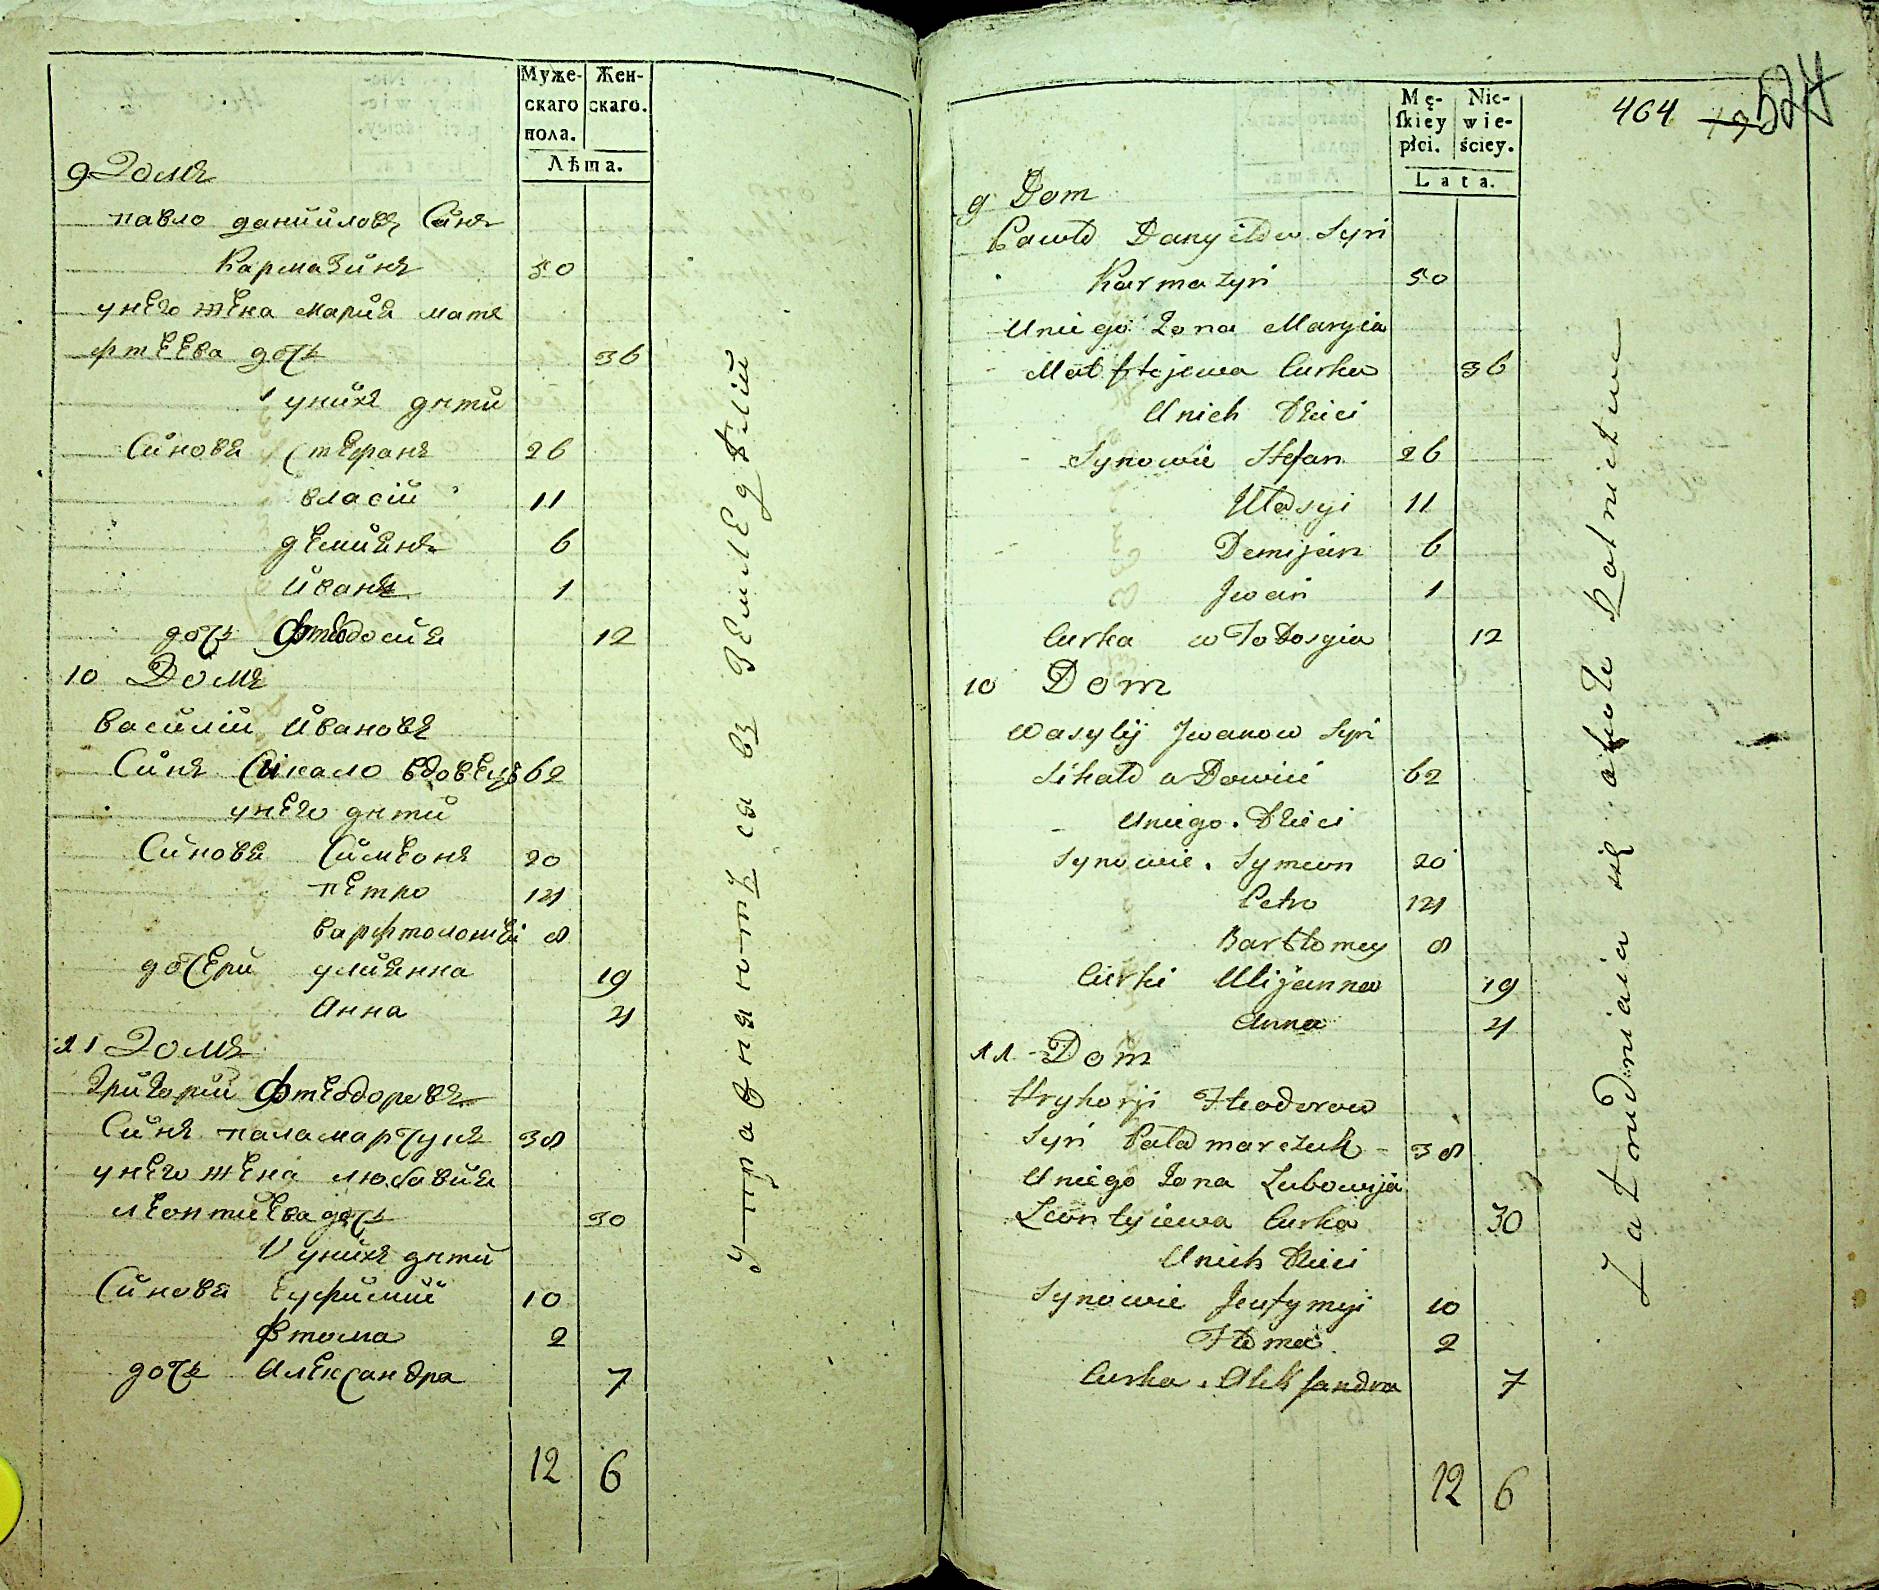 Муже-
скаго
пола.
Жен-
скаго.
Лѣта.
9 Домъ
павло данииловъ Синъ
Кармазинъ 50
унего жена мария мате
фтеева дочь 36
унихъ дети
Синовя Стефанъ 26
власій 11
демиянъ 6
Иванъ 1
дочь Фтеодосия 12
10 Домъ
василій Ивановъ
Синъ Сикало вдовецъ 62
унего дети
Синовя Симеонъ 20
петро 14
варфтоломей 8
дочери улиянна 19
Анна 4
11 Домъ
Григорий Фтеодоровъ
Синъ паламарчукъ 38
унего жена любовия
леонтиева дочь 30
унихъ дети
Синовя Еуфимий 10
Фтома 2
дочь Александра 7
12 6
упражняются въ земледѣлій
464 524
Mę-
skiey
płci.
Nie-
wie-
ściey.
Lata.
9 Dom
Pawło Danyiłow Syn
Karmazyn 50
Uniego Zona Maryia
Matftejewa Curka 36
Unich Dzieci
Synowie Stefan 26
Ułasyi 11
Demijan 6
Jwan 1
Curka Todosyia 12
10 Dom
Wasylij Jwanow Syn
Sikało Dowiec 62
Uniego Dzieci
Synowie Symeon 20
Petro 14
Bartłomey 8
Curki Ulijanna 19
Anna 4
11 Dom
Hryhoryi Fteodorow
Syn Pałamarczuk 38
Uniego Zona Lubowija
Leontyiewa Curka 30
Unich Dzieci
Synowie Jeufymyi 10
Ftoma 2
Curka Aleksandra 7
12 6
Zatrudniaia się około Rolnictwa